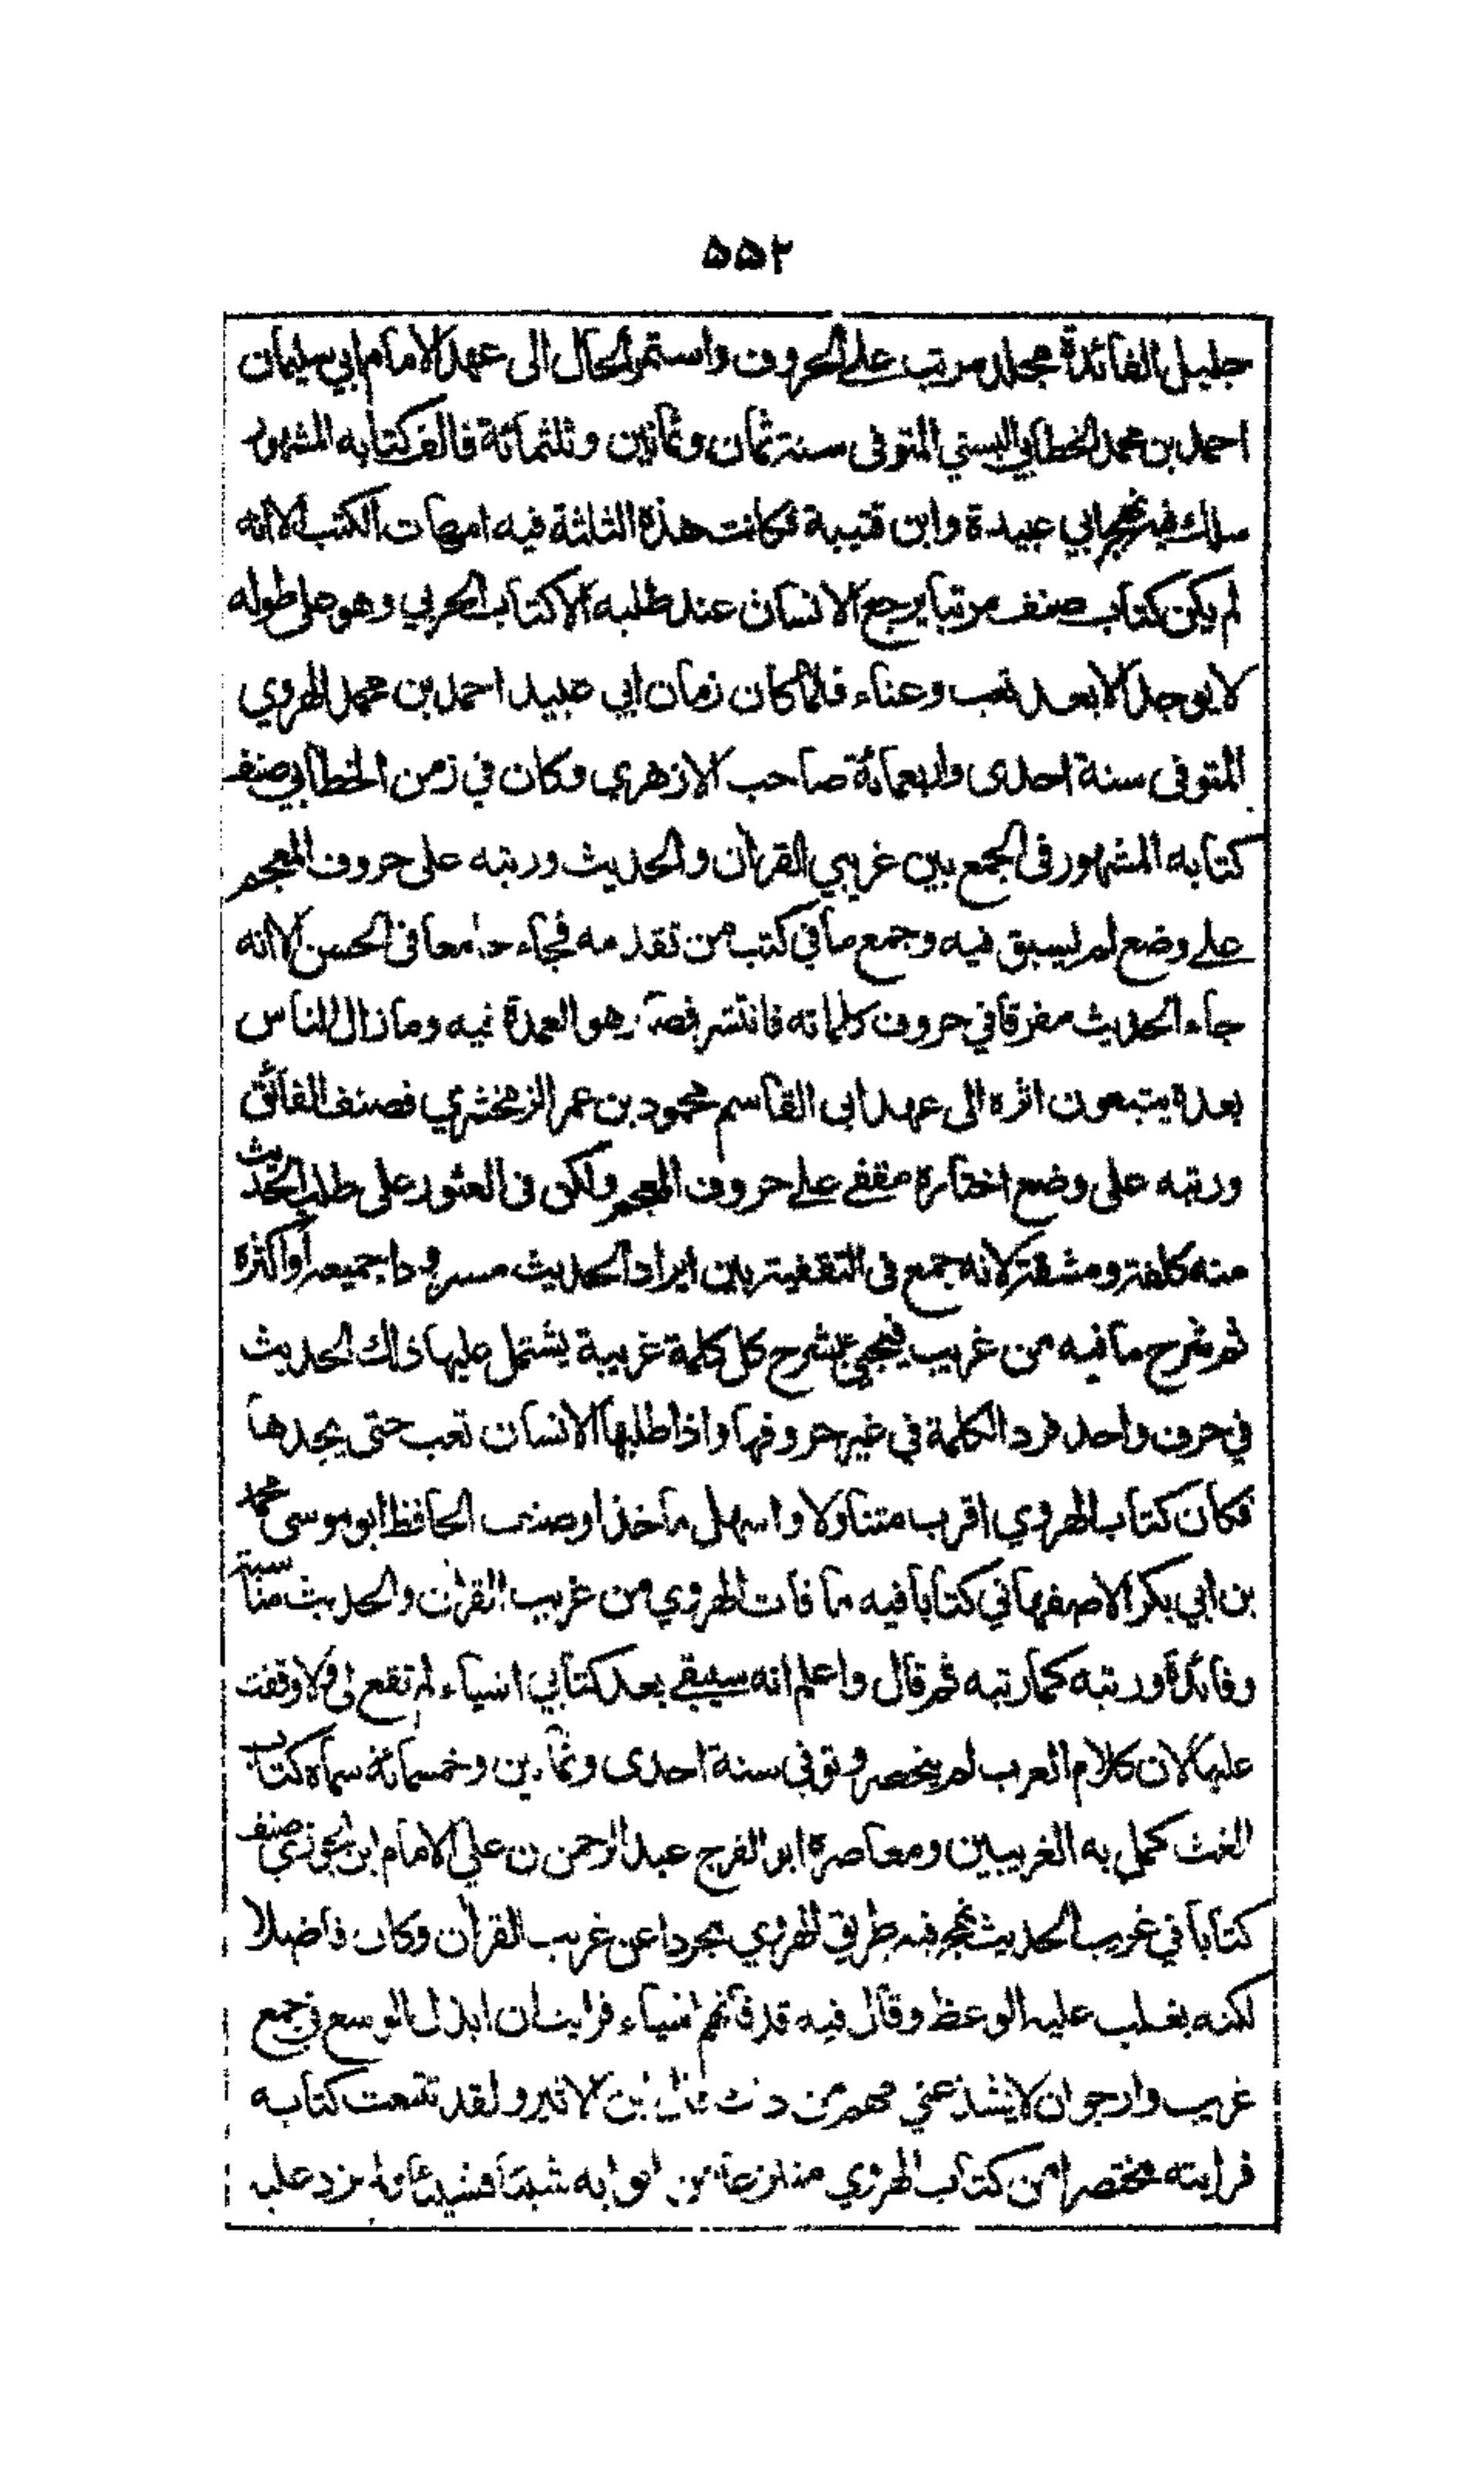 ۵۵۲
جليل الفائدة مجلد مرتب على الحروف واستمر الحال الى عهد الامام ابي سليمان
احمد بن محمد الخطابي البستي المتوفى سنة ثمان وثمانين وثلثمائة فالف كتابه المشهور
سلك فيه نهج ابي عبيدة وابن قتيبة فكانت هذه الثلثة فيه امهات الكتب الا انه
لم يكن كتاب صنف مرتبا يرجع الانسان عند طلبه الا كتاب الحربي وهو على طوله
لا يوجد الا بعد تعب وعناء فلما كان زمان ابي عبيد احمد بن محمد الهروي
المتوفى سنة احدى واربعمائة صاحب الازهري وكان في زمن الخطابي صنف
كتابه المشهور في الجمع بين غريبي القرآن والحديث ورتبه على حروف المعجم
على وضع لم يسبق فيه وجمع ما في كتب من تقدمه فجاء جامعا في الحسن الا انه
جاء الحديث مفرقا في حروف كلماته فانتشر فصار هو العمدة فيه وما زال الناس
بعده يتبعون اثره الى عهد ابى القاسم محمود بن عمر الزمخشري فصنف الفائق
ورتبه على وضع اختاره مقفى على حروف المعجم ولكن في العثور على طلب الحديث
منه كلفة ومشقة لانه جمع في التقفية بين ايراد الحديث مسرودا جميعه او اكثره
ثم شرح ما فيه من غريب فيجيء بشرح كل كلمة غريبة يشتمل عليها ذلك الحديث
في حرف واحد فرد الكلمة في غير حروفها واذا طلبها الانسان تعب حتى يجدها
فكان كتاب الهروي اقرب متناولا واسهل ماخذا وصنف الحافظ ابو موسى محمد
بن ابي بكر الاصفهاني كتابا فيه ما فات الهروي من غريب القرآن والحديث مناسبة
وفائدة ورتبه كما رتبه ثم قال واعلم انه سيبقى بعد كتابي اشياء لم تقع لي ولا وقفت
عليها لان كلام العرب لم ينحصر وتوفي سنة احدى وثمانين وخمسمائة سماه كتاب
المغيث كمل به الغريبين ومعاصره ابو الفرج عبد الرحمن بن علي الامام ابن الجوزي صنف
كتابا في غريب الحديث نهج فيه طريق الهروي مجردا عن غريب القرآن وكان فاضلا
لكنه يغلب عليه الوعظ وقال فيه قد فاتهم اشياء فرايت ان ابذل الوسع في جمع
غريب وارجو ان لا يشذ عني مهم من ذلك قال ابن الاثير ولقد تتبعت كتابه
فرايته مختصرا من كتاب الهروي منتزعا من ابوابه شيئا فشيئا ولم يزد عليه